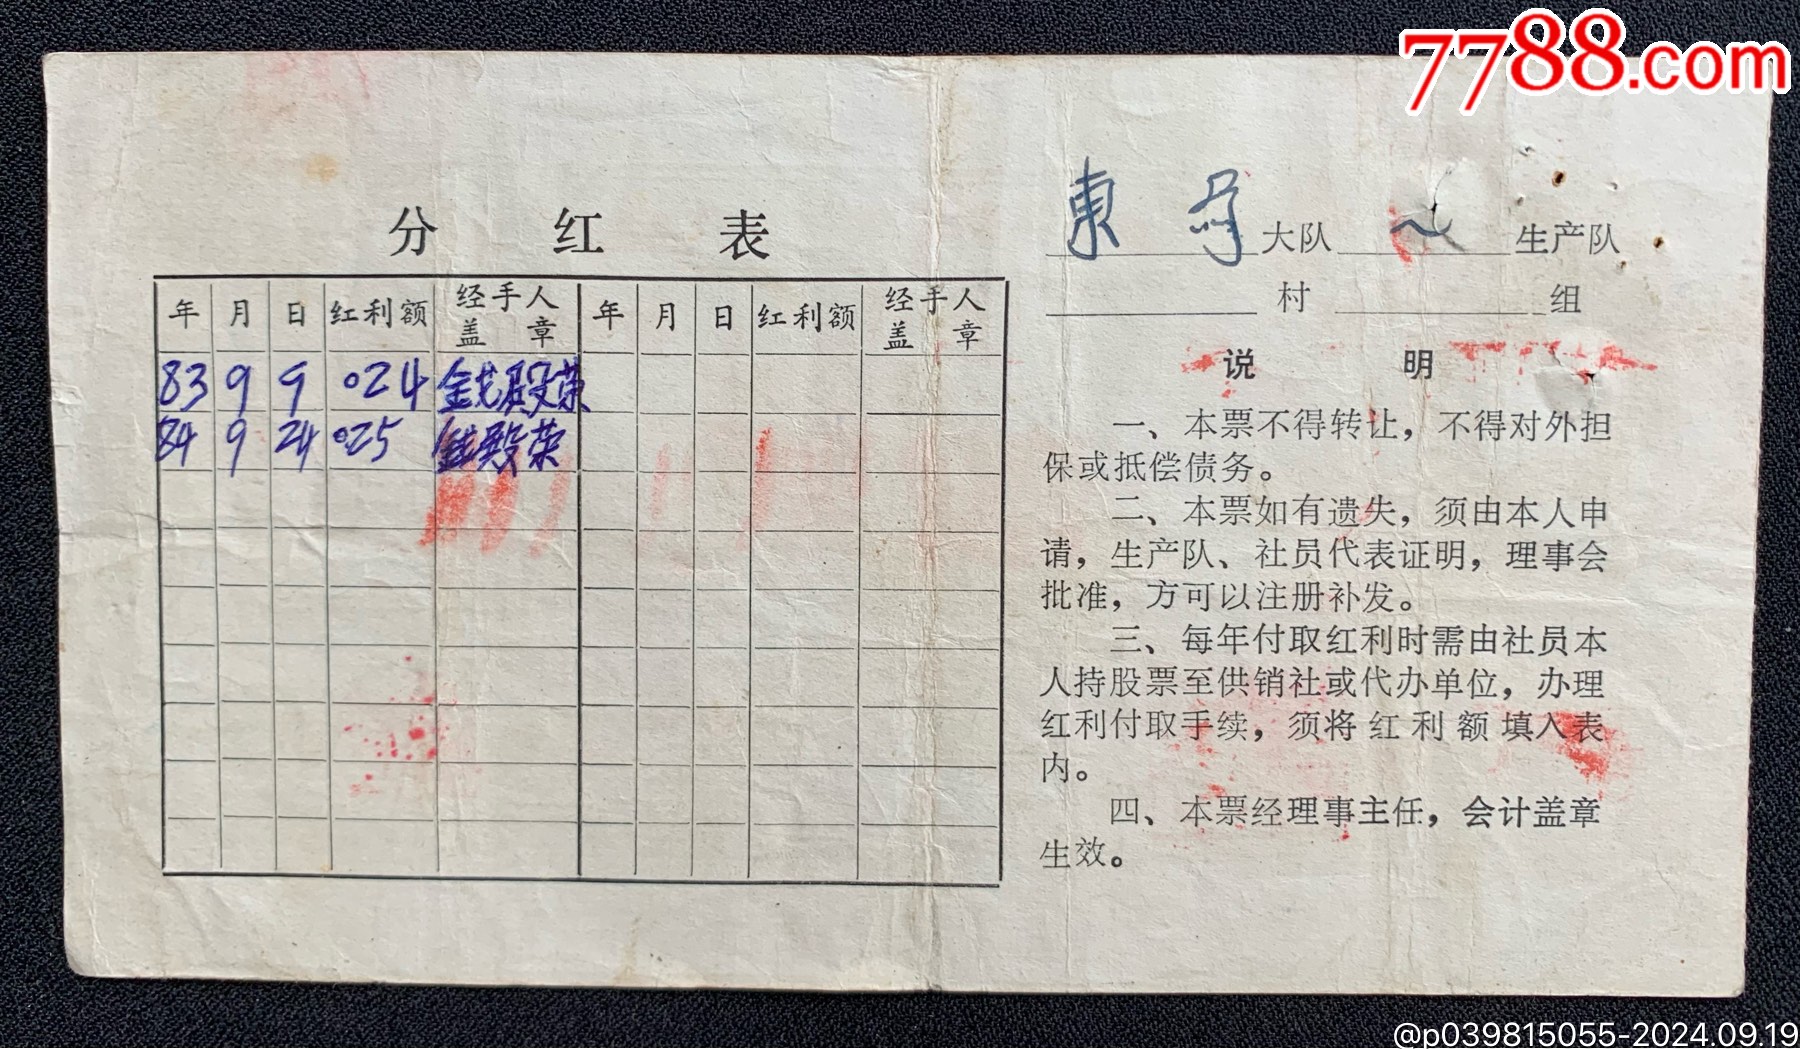 7788.com
分 红 表
年 月 日 红利额 经手人盖章 年 月 日 红利额 经手人盖章
83 9 9 024
84 9 24 025 殿荣
東 大队 生产队
村 组
说 明
一、本票不得转让，不得对外担
保或抵偿债务。
二、本票如有遗失，须由本人申
请，生产队、社员代表证明，理事会
批准，方可以注册补发。
三、每年付取红利时需由社员本
人持股票至供销社或代办单位，办理
红利付取手续，须将红利额填入表
内。
四、本票经理事主任，会计盖章
生效。
@p039815055-2024.09.19